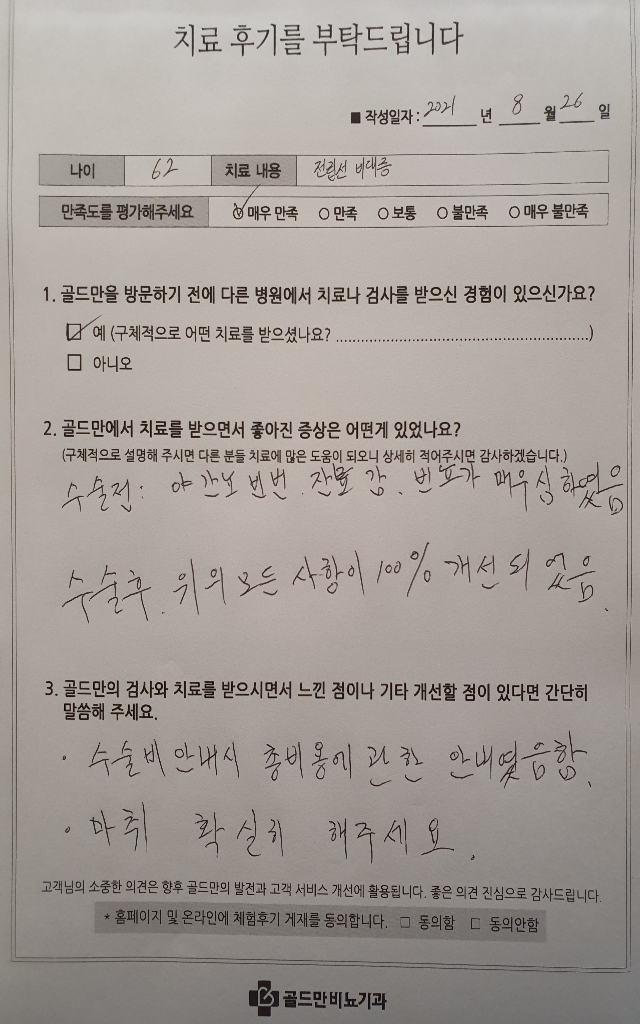 치료 후기를 부탁드립니다
■ 작성일자 : 2021 년 8 월 26 일
나이 62 치료 내용 전립선 비대증
만족도를 평가해주세요 매우 만족 만족 보통 불만족 매우 불만족
1. 골드만을 방문하기 전에 다른 병원에서 치료나 검사를 받으신 경험이 있으신가요?
예 (구체적으로 어떤 치료를 받으셨나요? ............................................................)
아니오
2. 골드만에서 치료를 받으면서 좋아진 증상은 어떤게 있었나요?
(구체적으로 설명해 주시면 다른 분들 치료에 많은 도움이 되오니 상세히 적어주시면 감사하겠습니다.)
수술전: 야간뇨 빈번. 잔뇨감. 빈뇨가 매우 심하였음
수술후. 위의 모든 사항이 100% 개선되었음.
3. 골드만의 검사와 치료를 받으시면서 느낀 점이나 기타 개선할 점이 있다면 간단히
말씀해 주세요.
· 수술비 안내시 총비용에 관한 안내였음함.
· 마취 확실히 해주세요.
고객님의 소중한 의견은 향후 골드만의 발전과 고객 서비스 개선에 활용됩니다. 좋은 의견 진심으로 감사드립니다.
* 홈페이지 및 온라인에 체험후기 게재를 동의합니다. □ 동의함 □ 동의안함
골드만비뇨기과